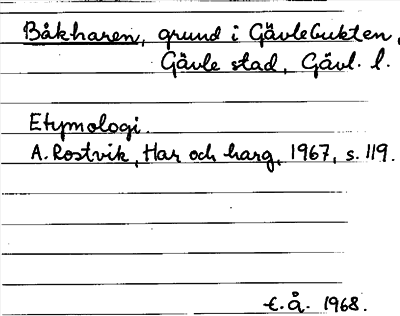 Båkharen, grund i Gävlebukten,
Gävle stad, Gävl. l.
Etymologi.
A. Rostvik, Har och harg, 1967, s. 119.
E.Å. 1968.